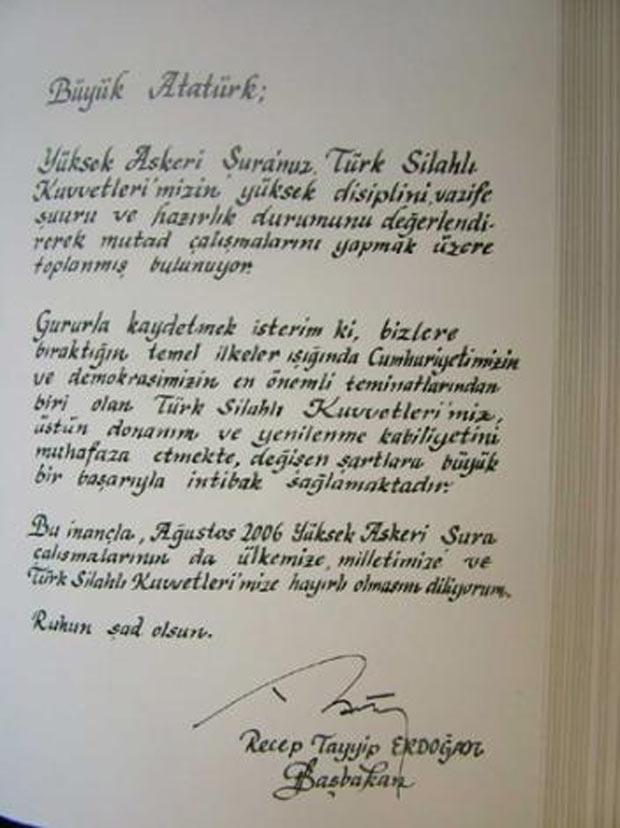 Büyük Atatürk;
Yüksek Askeri Şuramız, Türk Silahlı
Kuvvetleri'mizin yüksek disiplini, vazife
şuuru ve hazırlık durumunu değerlendi-
rerek mutad çalışmalarını yapmak üzere
toplanmış bulunuyor.
Gururla kaydetmek isterim ki, bizlere
bıraktığın temel ilkeler ışığında Cumhuriyetimizin
ve demokrasimizin en önemli teminatlarından
biri olan Türk Silahlı Kuvvetleri'miz,
üstün donanım ve yenilenme kabiliyetini
muhafaza etmekte, değişen şartlara büyük
bir başarıyla intibak sağlamaktadır.
Bu inançla, Ağustos 2006 Yüksek Askeri Şura
çalışmalarının da ülkemize, milletimize ve
Türk Silahlı Kuvvetleri'mize hayırlı olmasını diliyorum.
Ruhun şad olsun.
Recep Tayyip ERDOĞAN
Başbakan